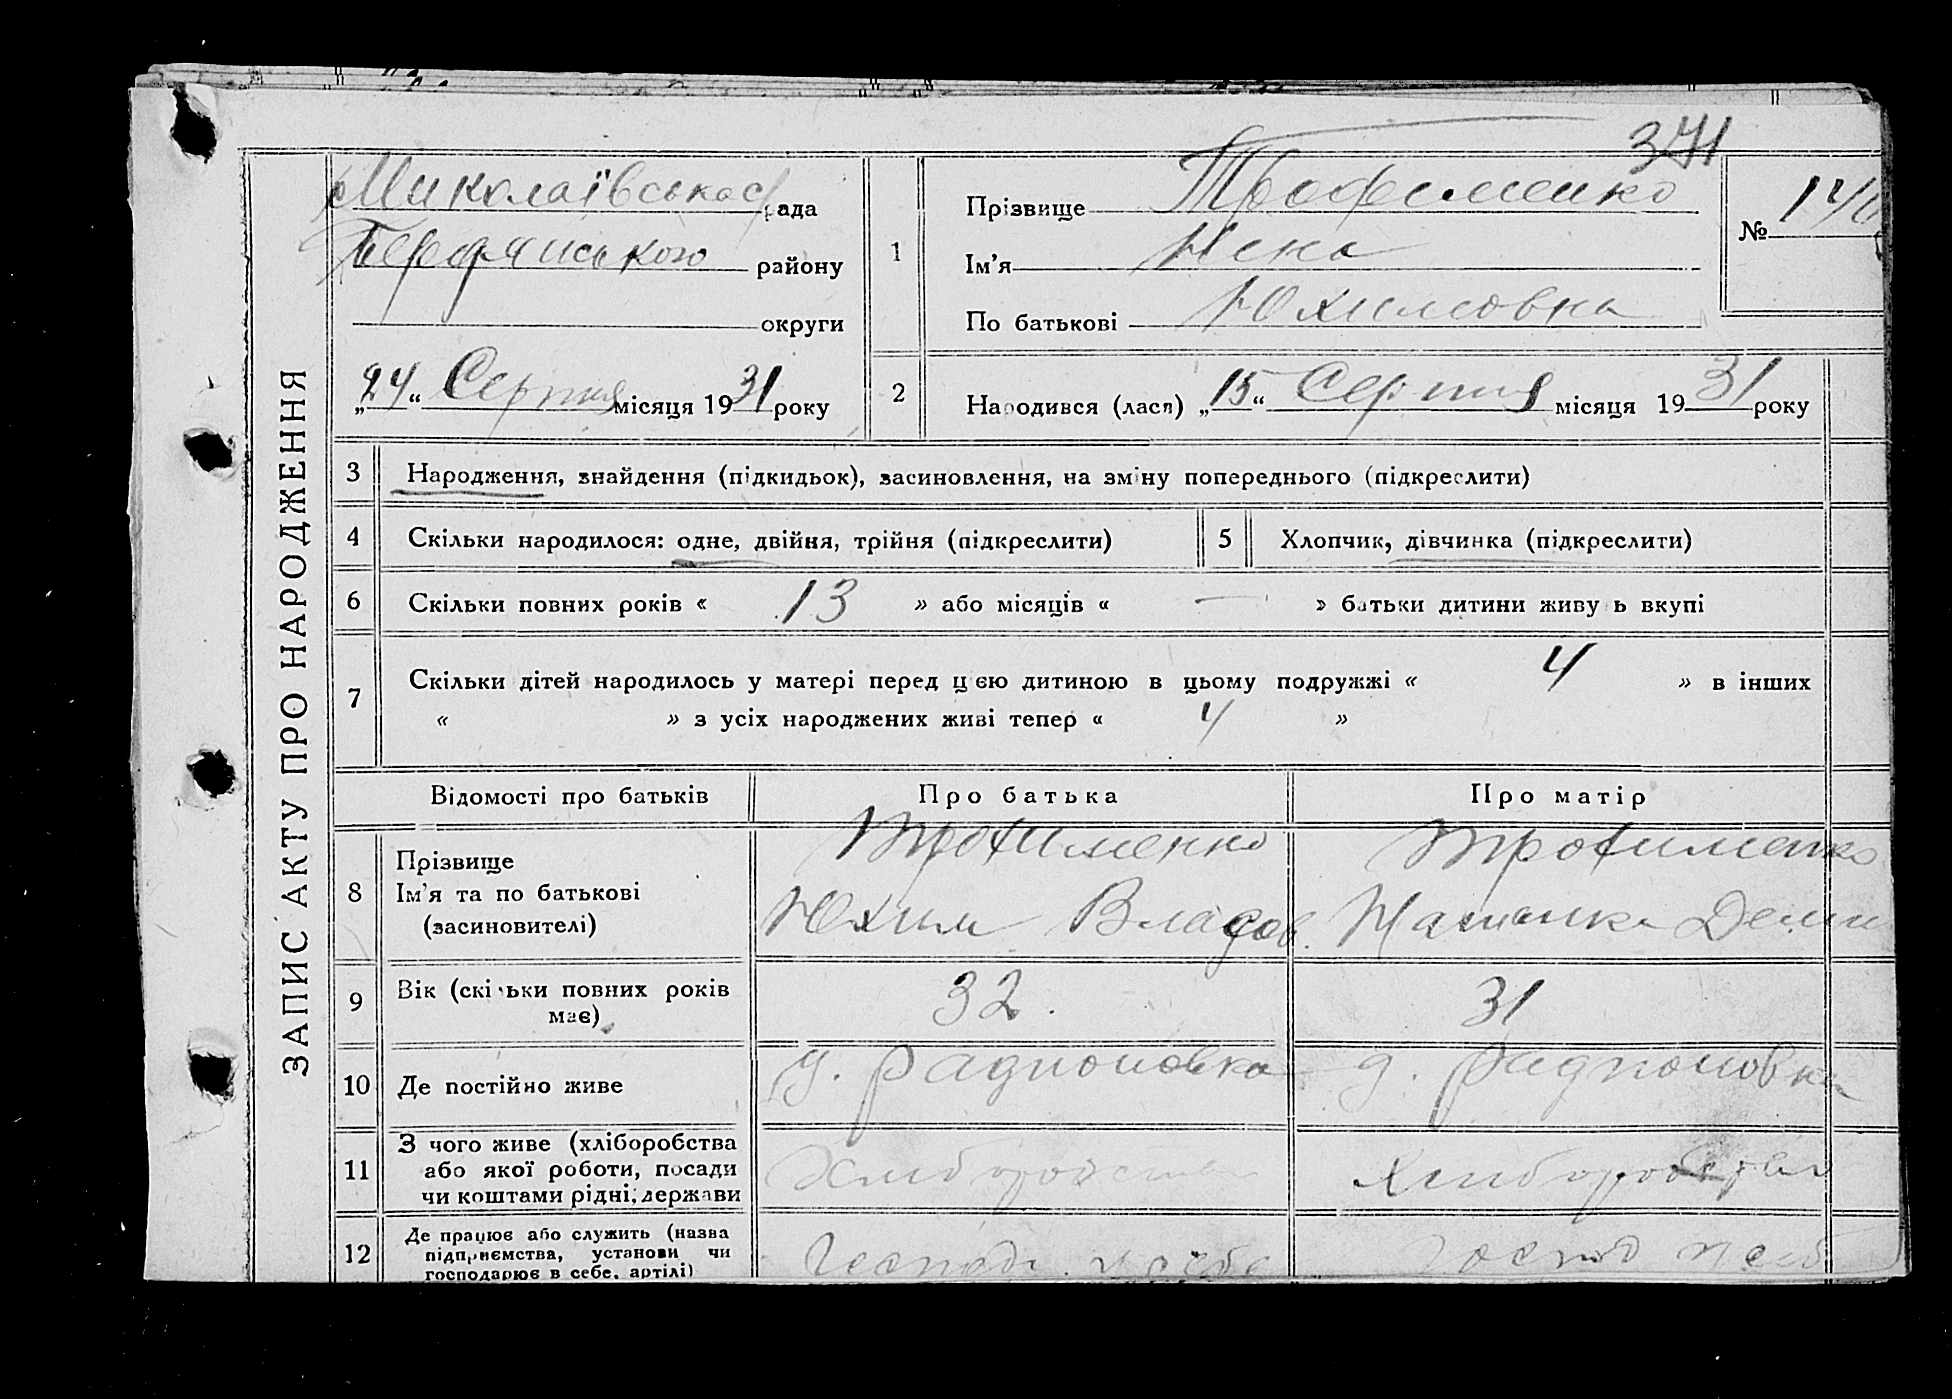 371
ЗАПИС АКТУ ПРО НАРОДЖЕННЯ
Миколаївська с/рада
Бердянського району
округи
„24“ Серпня місяця 1931 року
1
Прізвище Трофименко
Ім’я
По батькові Юхимовна
№ 140
2
Народився (лася) „15“ Серпня місяця 1931 року
3 Народження, знайдення (підкидьок), засиновлення, на зміну попереднього (підкреслити)
4 Скільки народилося: одне, двійня, трійня (підкреслити)
5 Хлопчик, дівчинка (підкреслити)
6 Скільки повних років « 13 » або місяців « — » батьки дитини живуть вкупі
7 Скільки дітей народилось у матері перед цією дитиною в цьому подружжі « 4 » в інших
« » з усіх народжених живі тепер « 4 »
Відомості про батьків Про батька Про матір
8 Прізвище
Ім’я та по батькові
(засиновителі)
Трофименко
Юхим Власов.
Трофименко
9 Вік (скільки повних років
має)
32.
31
10 Де постійно живе
д. Радионовка
д. Радионовка
11 З чого живе (хліборобства
або якої роботи, посади
чи коштами рідні, держави
Хлиборобства
Хлиборобства
12 Де працює або служить (назва
підприємства, установи чи
господарює в себе, артілі)